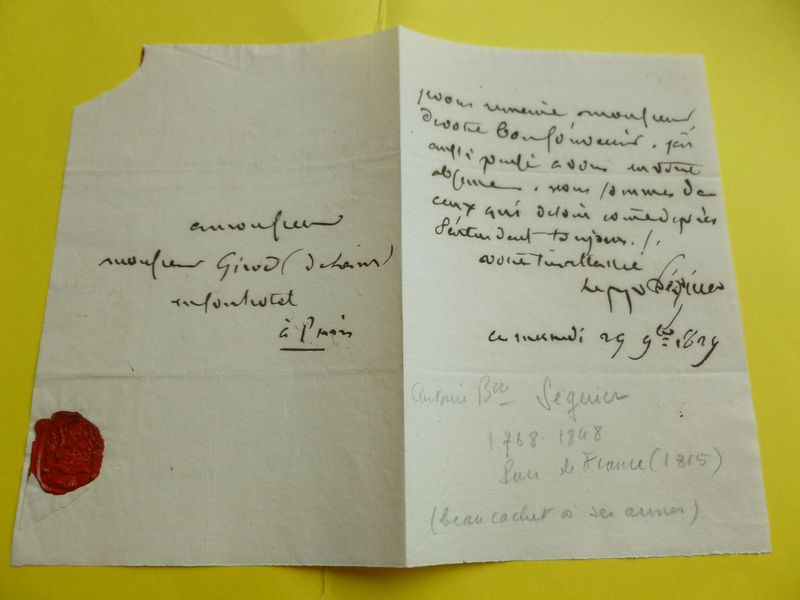 a monsieur
monsieur Girod (de l'ain)
en son hotel
à Paris
je vous remercie, monsieur,
de votre bon souvenir. j'ai
aussi pensé a vous en votre
absence. nous sommes de
ceux qui de loin comme de près
s'entendent toujours.
votre
Séguier
ce 29 9bre 1829
Antoine Bon Séguier
1768-1848
Pair de France (1815)
(beau cachet à ses armes)